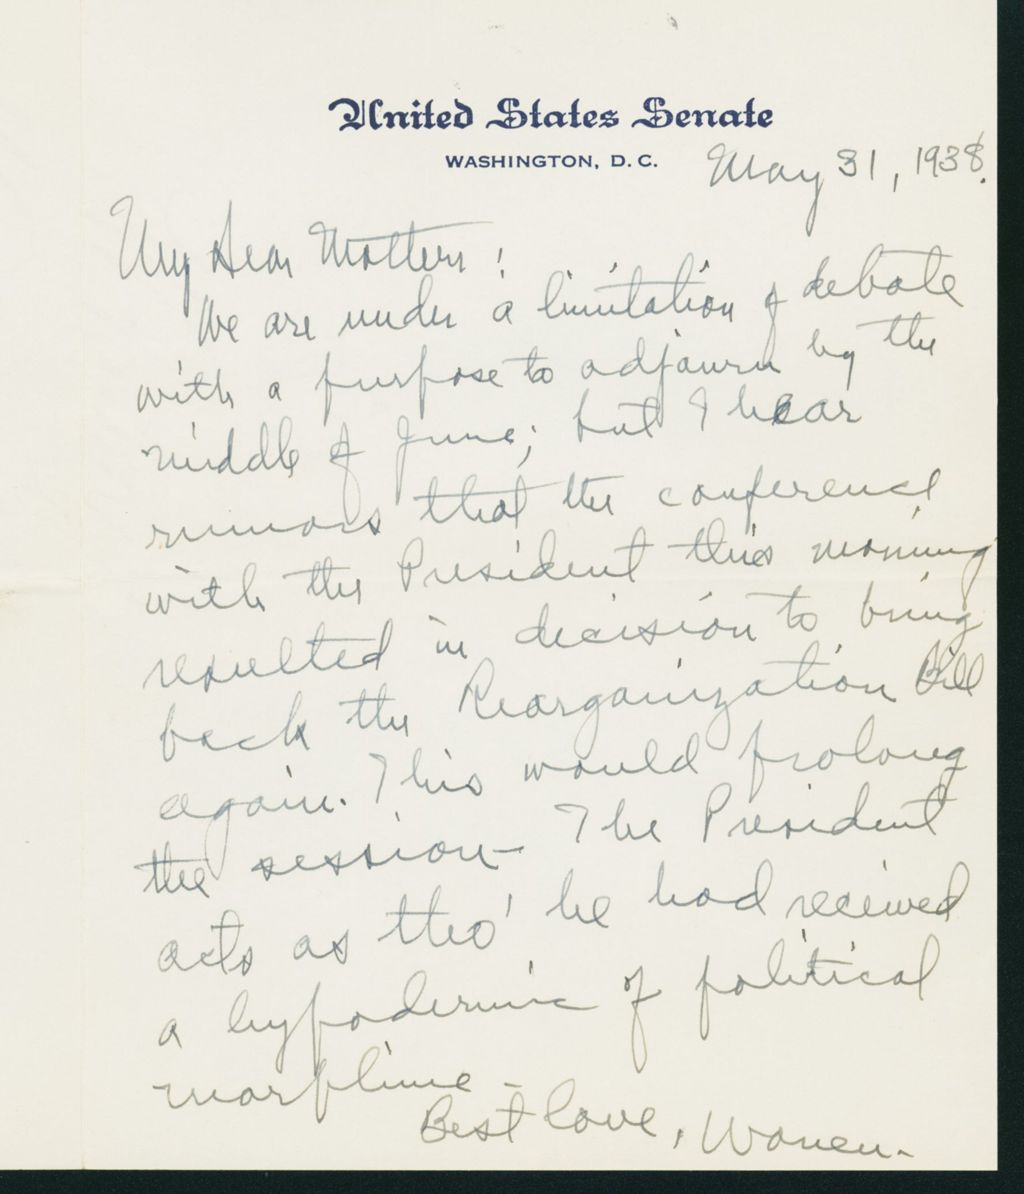 United States Senate
WASHINGTON, D. C.
May 31, 1938.
My Dear Mother:
We are under a limitation of debate
with a purpose to adjourn by the
middle of June; but I hear
rumors that the conference
with the President this morning
resulted in decision to bring
back the Reorganization Bill
again. This would prolong
the session - The President
acts as tho' he had received
a hypodermic of political
morphine -
Best love, Warren.